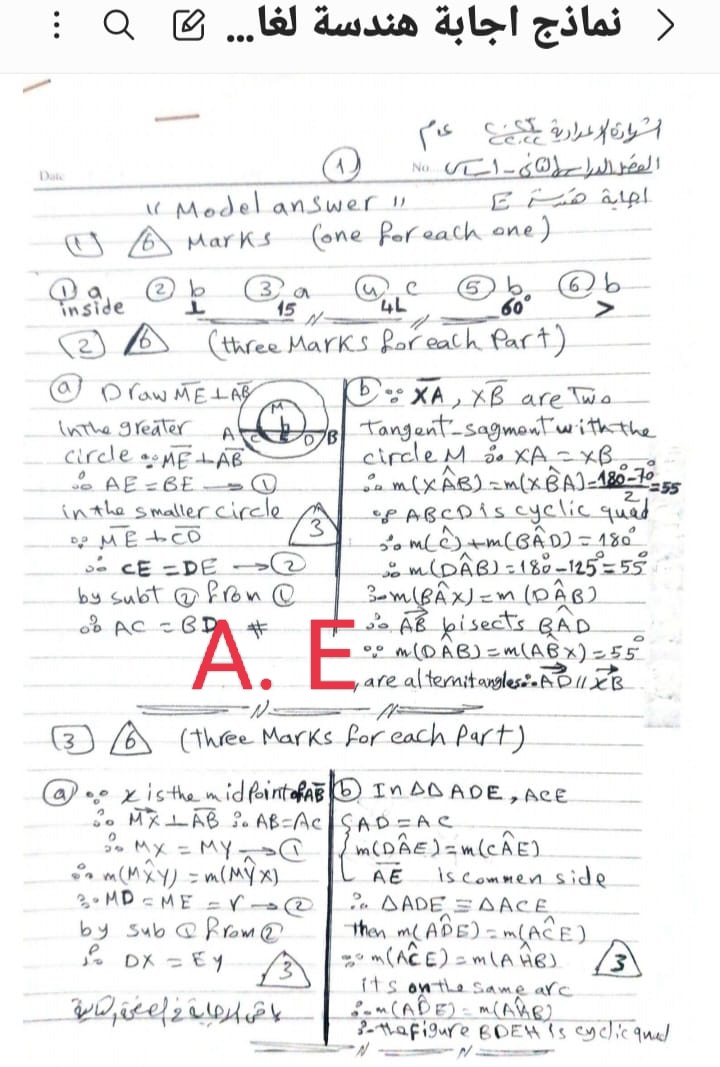 نماذج اجابة هندسة لغا...
الشهادة الإعدادية عام
Date
1
No.
اجابة هندسة E
" Model answer "
1 6 Marks (one for each one)
1 a 2 b 3 a 4 c 5 b 6 b
inside ⊥ 15 4L 60° >
2 6 (three Marks for each Part)
a Draw ME ⊥ AB
in the greater
circle ∵ ME ⊥ AB
∴ AE = BE → 1
in the smaller circle
∵ ME ⊥ CD
3
∴ CE = DE → 2
by subt 2 from 1
∴ AC = BD #
M
A C E D B
b ∵ XA, XB are Two
Tangent-sagment with the
circle M ∴ XA = XB
∴ m(XÂB) = m(XB̂A) = 180°-70°/2 = 55°
∵ ABCD is cyclic quad
∴ m(Ĉ) + m(BÂD) = 180°
∴ m(DÂB) = 180° - 125° = 55°
∴ m(BÂX) = m(DÂB)
∴ AB bisects BÂD
∵ m(DÂB) = m(AB̂X) = 55°
, are alternit angles ∴ AD // XB
A. E
3 6 (Three Marks for each Part)
a ∵ X is the mid Point of AB
∴ MX ⊥ AB ∵ AB = AC
∴ MX = MY → 1
∴ m(MX̂Y) = m(MŶX)
∵ MD = ME = r → 2
by sub 1 from 2
∴ DX = EY
3
b In ΔΔ ADE, ACE
AD = AC
m(DÂE) = m(CÂE)
AE is commen side
∴ ΔADE ≡ ΔACE
then m(AD̂E) = m(AĈE)
∵ m(AĈE) = m(AĤB)
3
its on the same arc
∴ m(AD̂E) = m(AĤB)
∴ the figure BDEH is cyclic quad
باقى الإجابة فى الصفحة الثانية